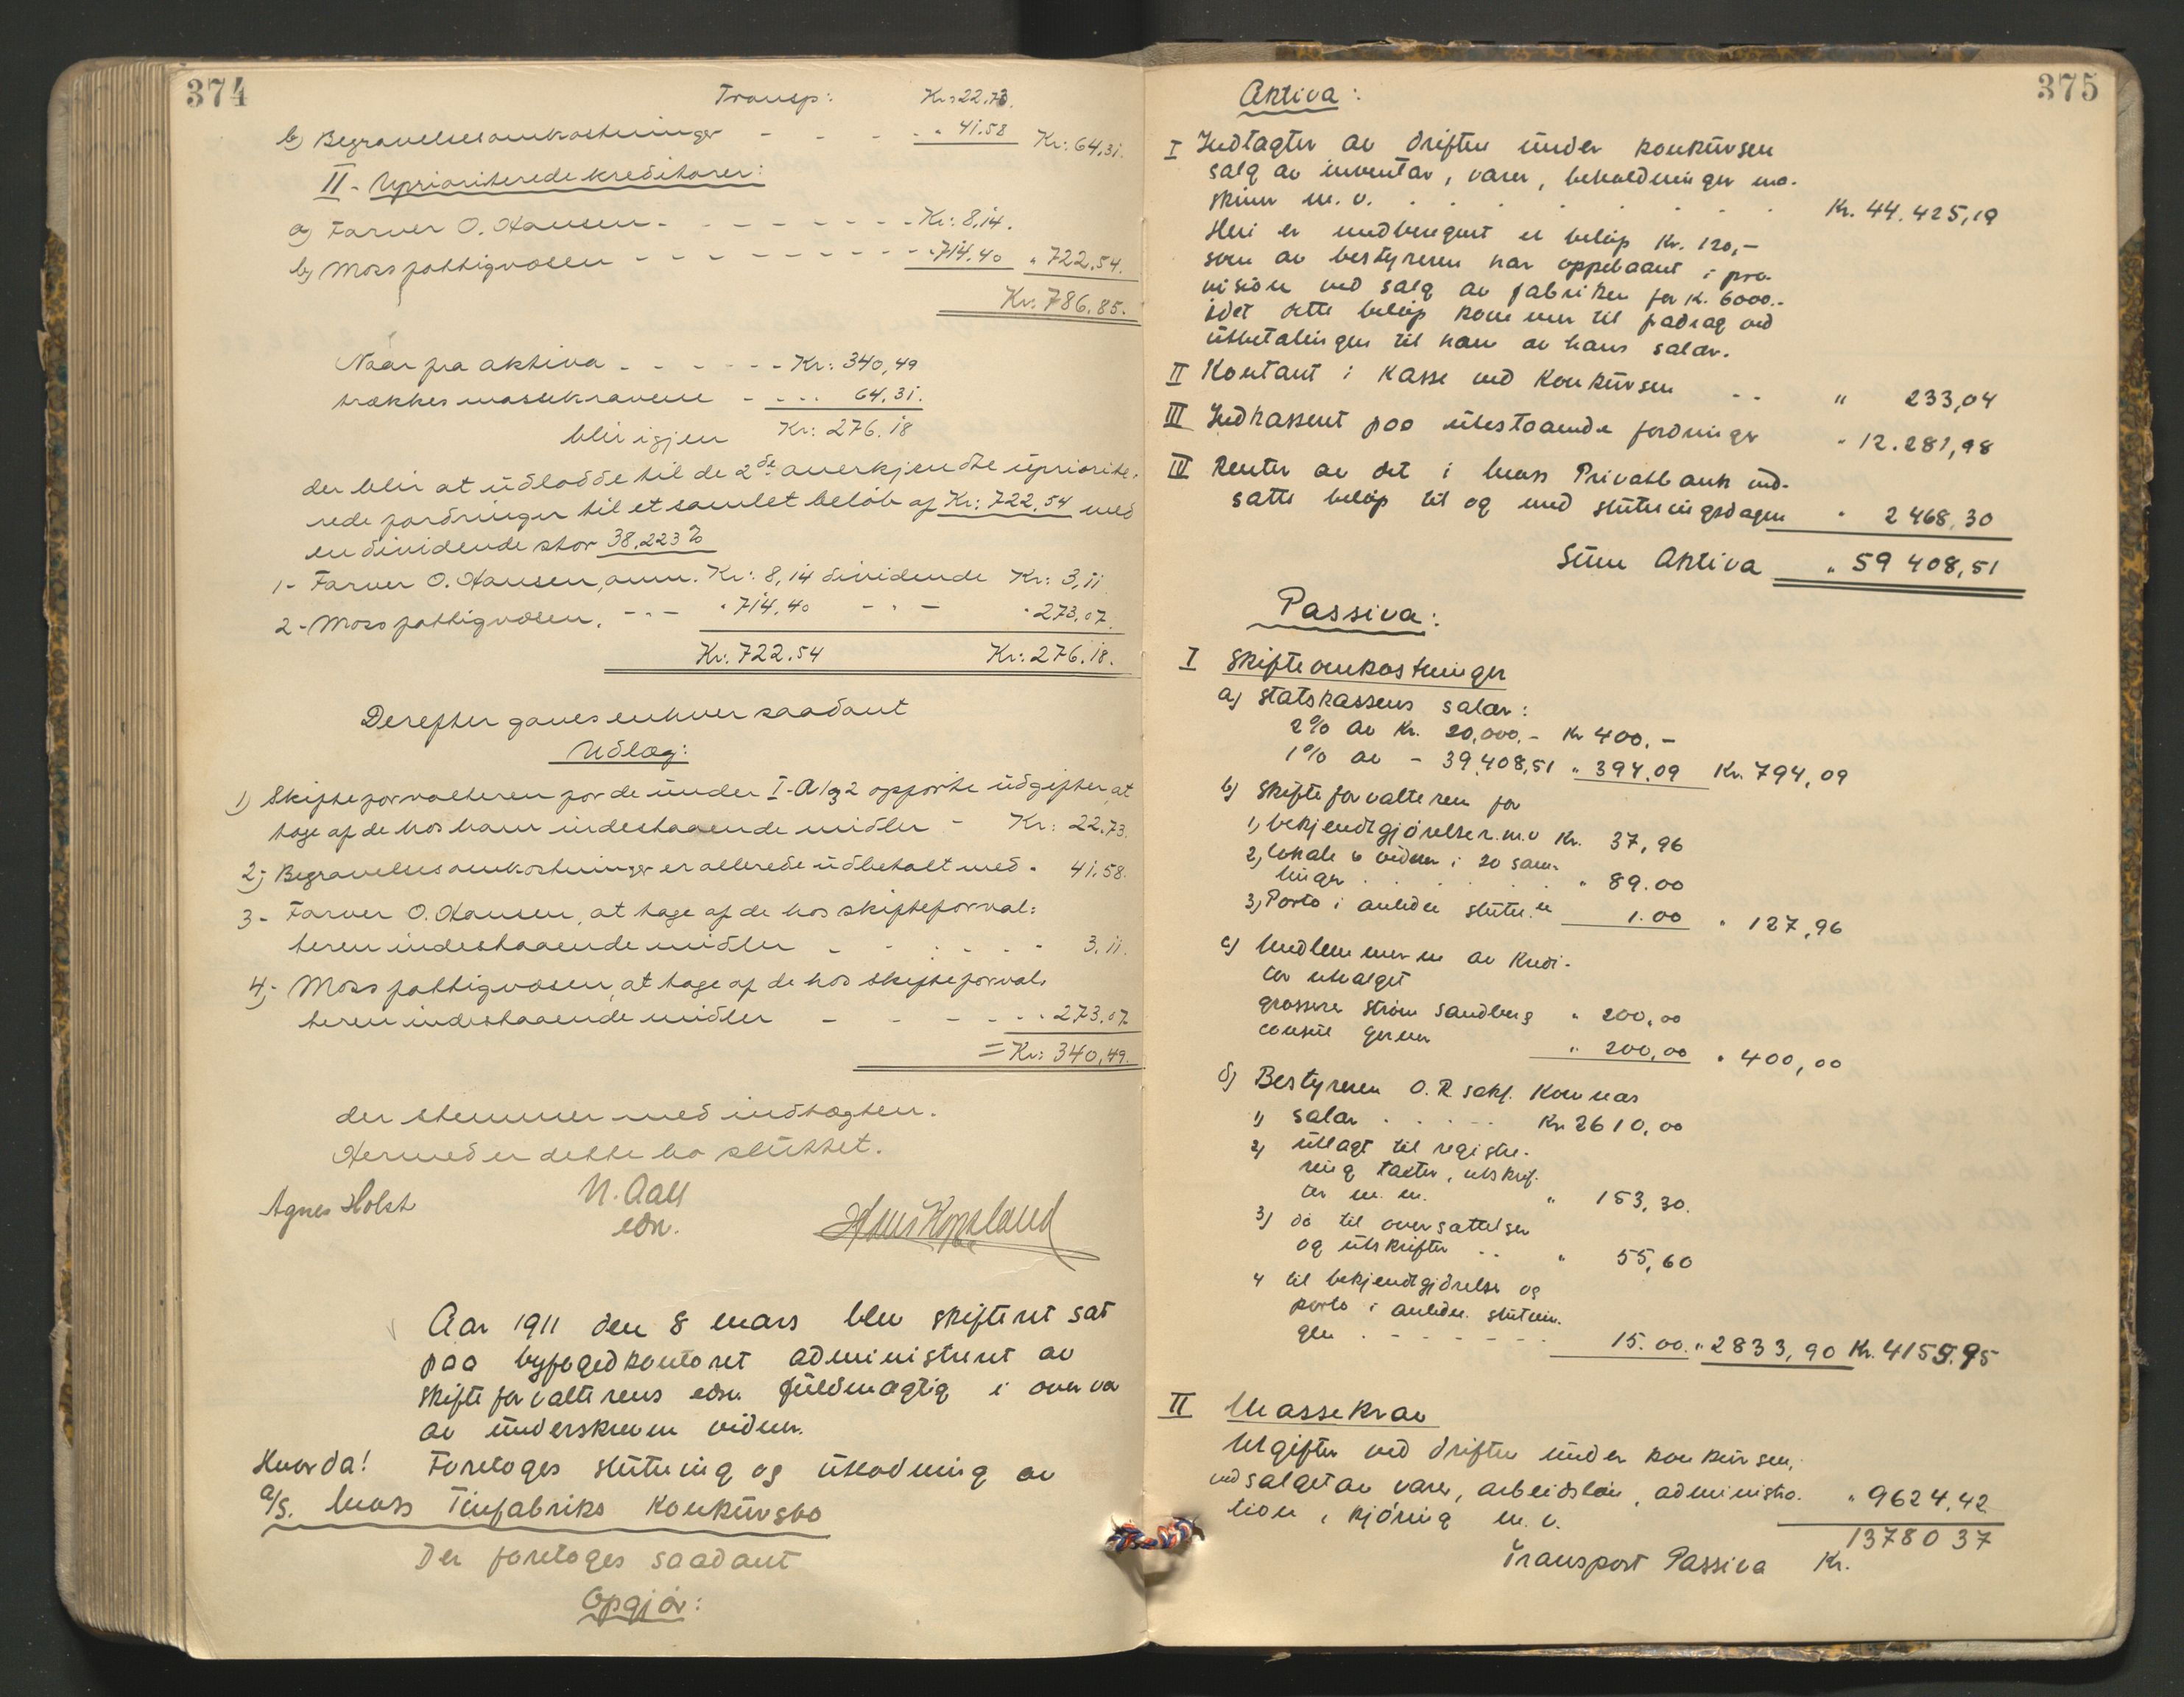 374
Transp: Kr: 22.73.
b) Begravelsesomkostninger - - - - " 41.58 Kr: 64,31.
II - Uprioriterede kreditorer:
a) Farver O. Hansen - - - - - - - Kr: 8,14.
b) Moss fattigvæsen - - - - - - - - - " 714.40 " 722.54.
Kr: 786.85.
Naar fra aktiva - - - - - - Kr: 340,49
trækkes massekravene - - .. 64.31.
blir igjen Kr: 276.18
der blir at udlodde til de 2de anerkjendte upriorite-
rede fordringer til et samlet beløb af Kr: 722,54 med
en dividende stor 38,223 %
1- Farver O. Hansen, anm. Kr: 8,14 dividende Kr: 3,11
2- Moss fattigvæsen. - " - " 714.40 - " - " 273.07.
Kr: 722.54 Kr: 276.18.
Derefter gaves enhver saadant
Udlæg:
1) Skifteforvalteren for de under I-A 1 og 2 opførte udgifter, at
tage af de hos ham indestaaende midler - Kr: 22.73.
2; Begravelsesomkostninger er allerede udbetalt med " 41.58.
3- Farver O. Hansen, at tage af de hos skifteforval:
teren indestaaende midler - - - - - - 3.11.
4;- Moss fattigvæsen, at tage af de hos skifteforval.
teren indestaaende midler - - - - - " 273.07
= Kr: 340,49.
der stemmer med indtægten.
Hermed er dette bo sluttet.
Agnes Holst N. Aall Hans Kopeland
edsv.
Aar 1911 den 8 mars blev skifteret sat
paa byfogedkontoret administreret av
skifteforvalterens edsv. fuldmægtig i overvær
av underskreven vidner.
Hvorda! Foretoges slutning og utlodning av
A/S. Moss Tinfabriks Konkursbo
Der foretoges saadant
Opgjør:
375
Aktiva:
I Indtægter av driften under konkursen
salg av inventar, varer, beholdninger ma-
skiner m. v. . . . . . . . Kr. 44.425,19
Heri er medberegnet et beløp Kr. 120,-
som av bestyreren har oppebaaret i pro-
vision ved salg av fabriken for K. 6000.-
idet dette beløp kommer til fradrag ved
utbetalingen til ham av hans salær.
II Kontant i Kasse ved Konkursen .. " 233,04
III Indkasseret paa utestaaende fordringer " 12.281,98
IV Renter av det i Moss Privatbank ind-
satte beløp til og med slutningsdagen " 2468,30
Sum Aktiva " 59 408,51
Passiva:
I Skifteomkostninger
a) Statskassens salær:
2% av Kr. 20,000.- Kr 400.-
1% av - 39,408,51 " 394.09 Kr. 794,09
b) Skifteforvalteren for
1, bekjendtgjørelser m. v Kr. 37,96
2, lokale & vidner i 20 sam-
linger . . . . . . " 89.00
3, Porto i anledn slutn. en 1.00 " 127,96
c) Medlemmerne av Kredi-
tor utvalget
grosserer Strøm Sandberg " 200,00
consul Gerner " 200,00 " 400,00
d) Bestyreren O.R.sakf. Kornæs
1) salær . . . . . Kr. 2610,00
2) utlagt til registre-
ring takster, utskrif-
ter m. m. " 153,30.
3) do til oversættelser
og utskrifter .. " 55,60
4 til bekjendtgjørelse og
porto i anledn. slutnin-
gen . - - - - - - 15.00. " 2833,90 Kr. 4155.95
II Massekrav
Utgifter ved driften under konkursen,
ved salget av varer, arbeidsløn, administra- " 9624,42
tion, kjøring m. v. 13780 37
Transport Passiva Kr.